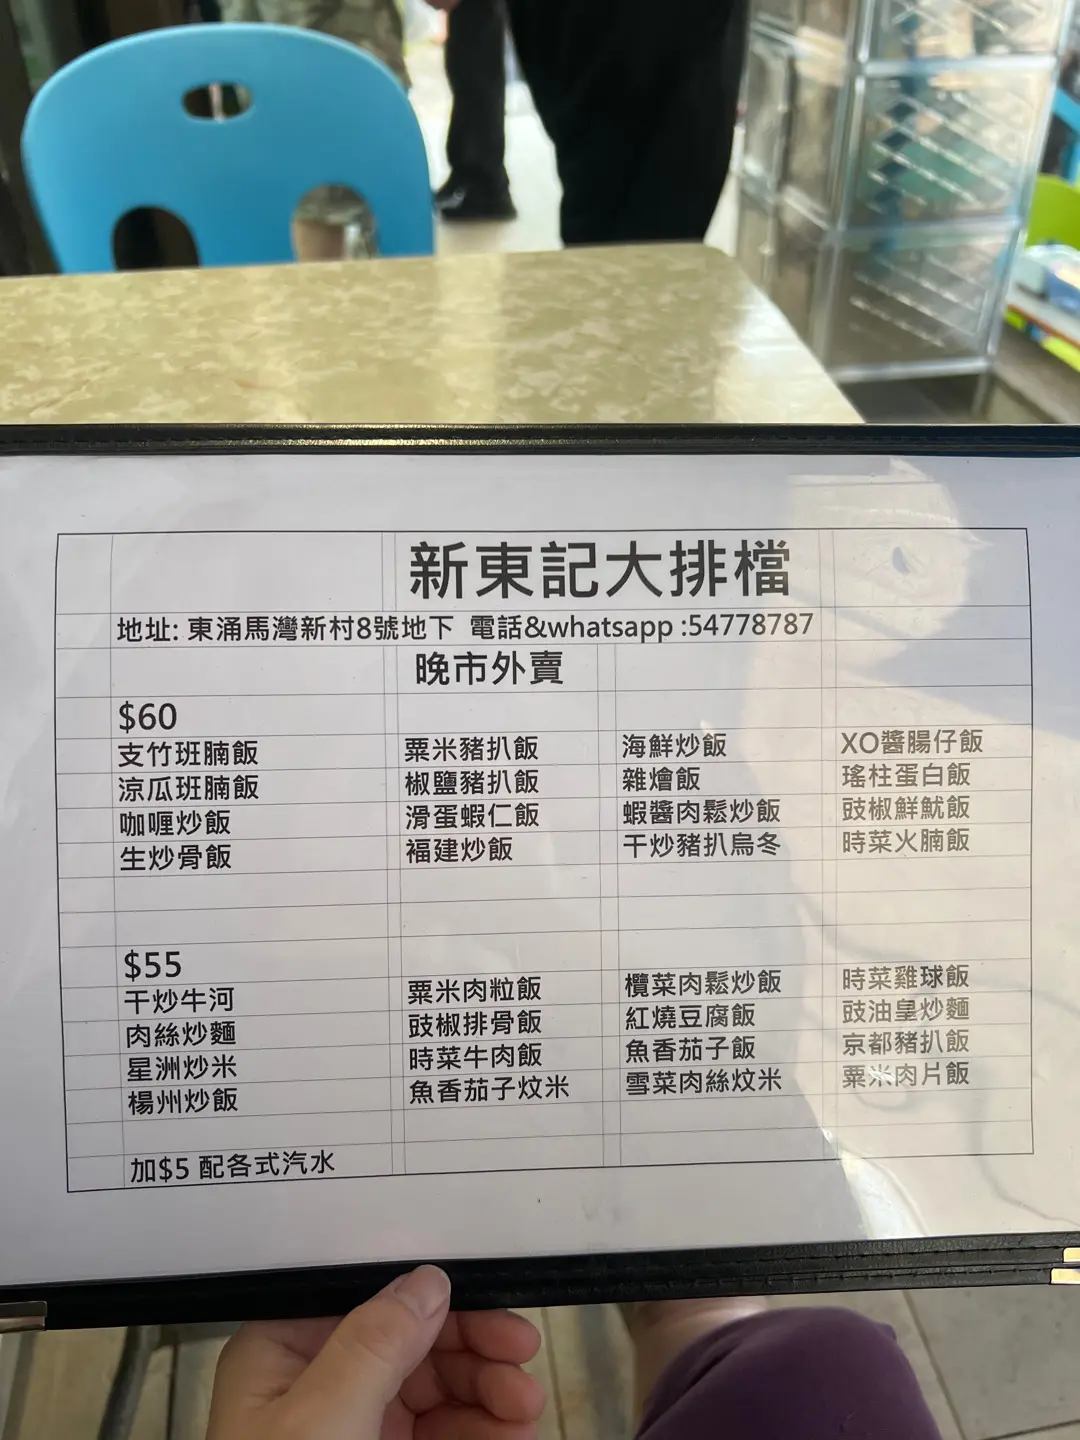 新東記大排檔
地址: 東涌馬灣新村8號地下 電話&whatsapp :54778787
晚市外賣
$60
支竹班腩飯 粟米豬扒飯 海鮮炒飯 XO醬腸仔飯
涼瓜班腩飯 椒鹽豬扒飯 雜燴飯 瑤柱蛋白飯
咖喱炒飯 滑蛋蝦仁飯 蝦醬肉鬆炒飯 豉椒鮮魷飯
生炒骨飯 褔建炒飯 干炒豬扒烏冬 時菜火腩飯
$55
干炒牛河 粟米肉粒飯 欖菜肉鬆炒飯 時菜雞球飯
肉絲炒麵 豉椒排骨飯 紅燒豆腐飯 豉油皇炒麵
星洲炒米 時菜牛肉飯 魚香茄子飯 京都豬扒飯
楊州炒飯 魚香茄子炆米 雪菜肉絲炆米 粟米肉片飯
加$5 配各式汽水